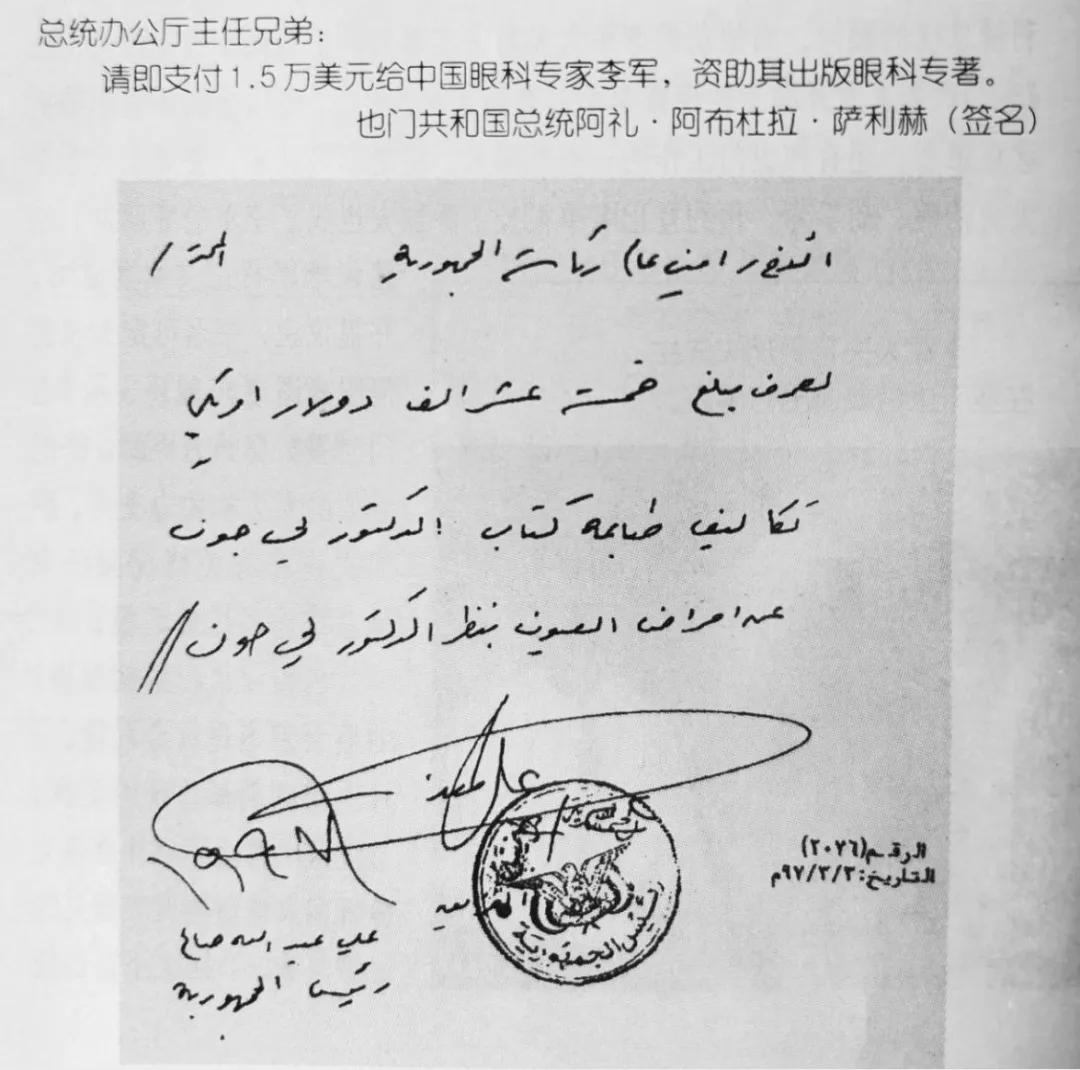 总统办公厅主任兄弟：
请即支付1.5万美元给中国眼科专家李军，资助其出版眼科专著。
也门共和国总统阿礼·阿布杜拉·萨利赫（签名）
الاخ / امين عام رئاسة الجمهورية المحترم /
يصرف مبلغ خمسة عشر الف دولار امريكي
تكاليف طباعة كتاب الدكتور لي جون
عن امراض العيون بنظر الدكتور لي جون //
الرقم (٢٠٢٦)
التاريخ: ٩٧/٢/٢م
علي عبد الله صالح
رئيس الجمهورية
رئيس الجمهورية